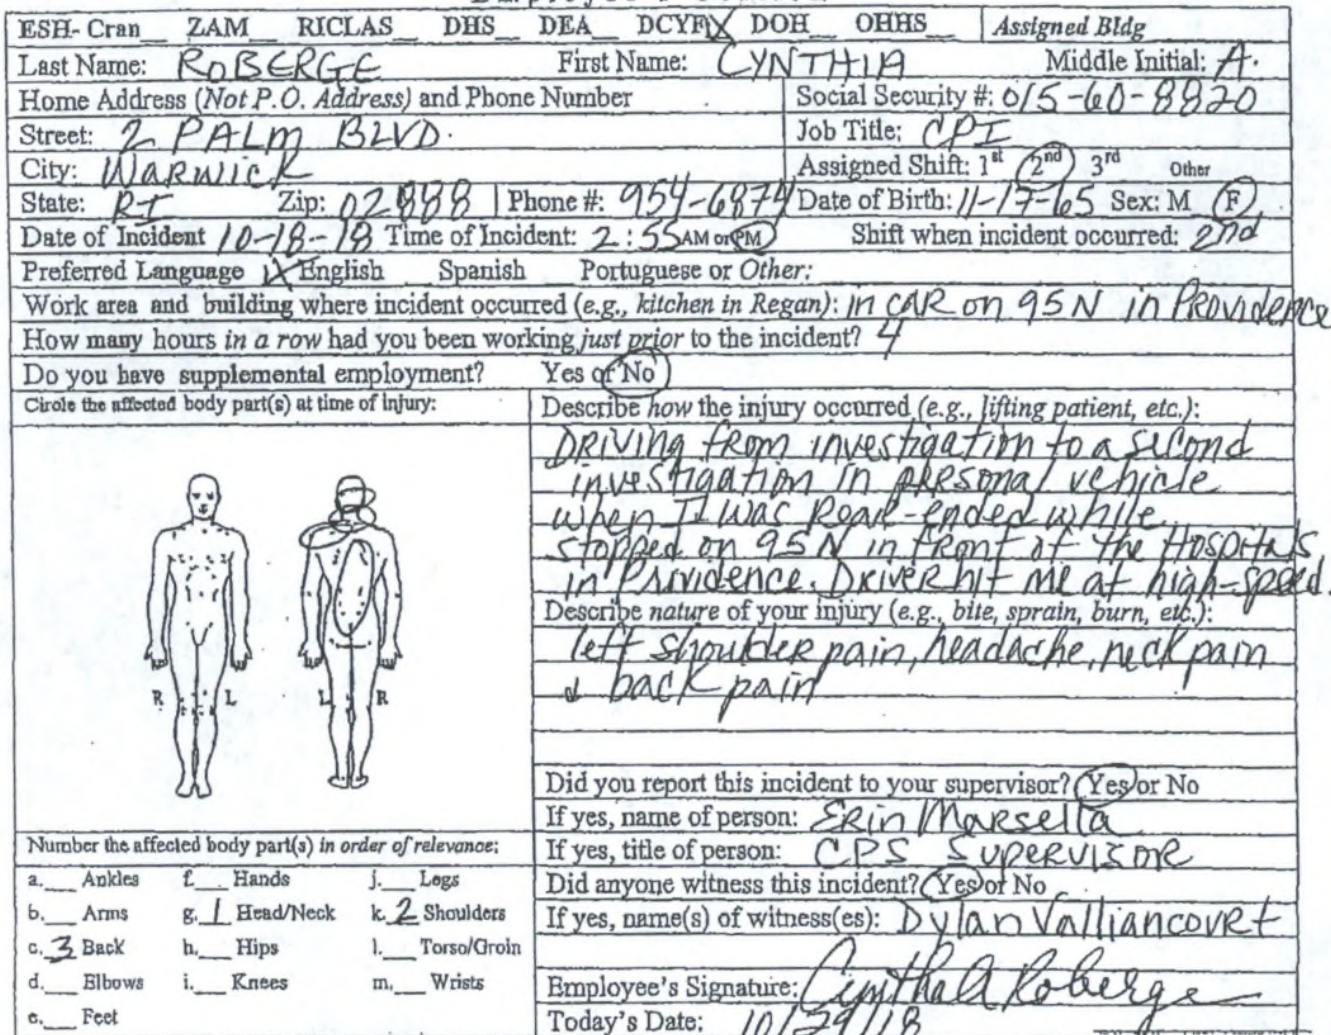 ESH- Cran__ ZAM__ RICLAS__ DHS__ DEA__ DCYF X DOH__ OHHS__ Assigned Bldg
Last Name: ROBERGE First Name: CYNTHIA Middle Initial: A.
Home Address (Not P.O. Address) and Phone Number Social Security #: 015-60-8820
Street: 2 PALM BLVD. Job Title: CPI
City: WARWICK Assigned Shift: 1st 2nd 3rd Other
State: RI Zip: 02888 Phone #: 954-6874 Date of Birth: 11-17-65 Sex: M F
Date of Incident 10-18-18 Time of Incident: 2:55 AM or PM Shift when incident occurred: 2nd
Preferred Language X English Spanish Portuguese or Other:
Work area and building where incident occurred (e.g., kitchen in Regan): in CAR on 95N in Providence
How many hours in a row had you been working just prior to the incident? 4
Do you have supplemental employment? Yes or No
Circle the affected body part(s) at time of injury:
R L L R
Number the affected body part(s) in order of relevance:
a.__ Ankles f.__ Hands j.__ Legs
b.__ Arms g. 1 Head/Neck k. 2 Shoulders
c. 3 Back h.__ Hips l.__ Torso/Groin
d.__ Elbows i.__ Knees m.__ Wrists
e.__ Feet
Describe how the injury occurred (e.g., lifting patient, etc.):
DRIVING from investigation to a second
investigation in personal vehicle
when I was Rear-ended while
stopped on 95N in front of the Hospitals
in Providence. DRIVER hit me at high-speed.
Describe nature of your injury (e.g., bite, sprain, burn, etc.):
left shoulder pain, headache, neck pain
& back pain
Did you report this incident to your supervisor? Yes or No
If yes, name of person: Erin Marsella
If yes, title of person: CPS Supervisor
Did anyone witness this incident? Yes or No
If yes, name(s) of witness(es): Dylan Valliancourt
Employee's Signature: Cynthia A Roberge
Today's Date: 10/29/18